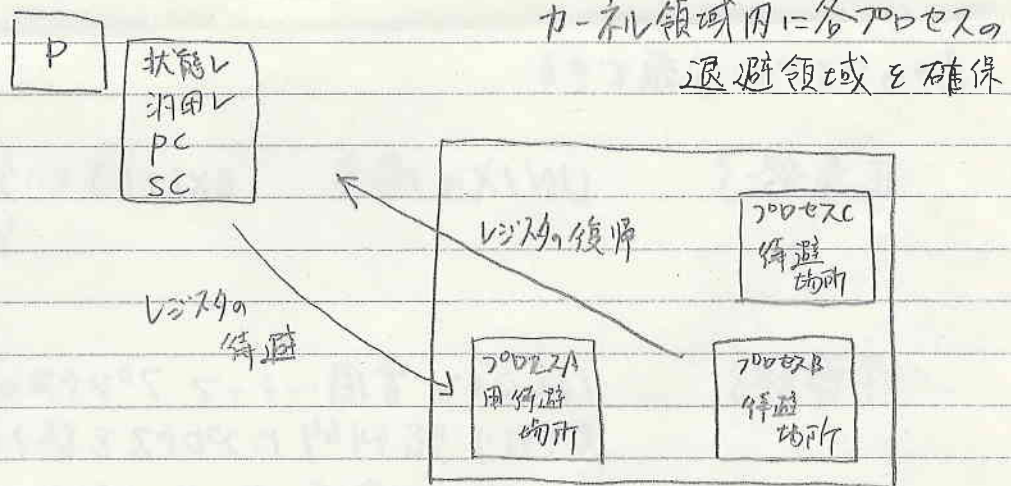 カーネル領域内に各プロセスの
退避領域を確保
P
状態レ
汎用レ
PC
SC
レジスタの復帰
レジスタの
待避
プロセスC
待避
場所
プロセスA
用待避
場所
プロセスB
待避
場所